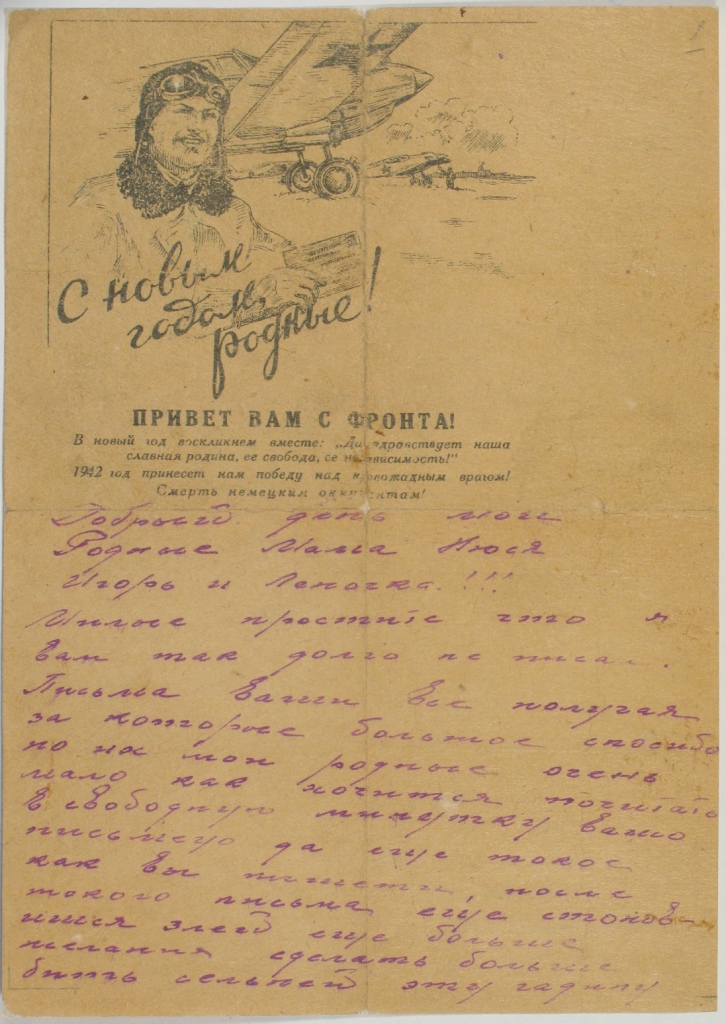 С новым
годом,
родные!
ПРИВЕТ ВАМ С ФРОНТА!
В новый год воскликнем вместе: „Да здравствует наша
славная родина, ее свобода, ее независимость!"
1942 год принесет нам победу над кровожадным врагом!
Смерть немецким оккупантам!
Добрый день мои
Родные Мама Нюся
Игорь и Леночка.!!!
Милые простите что я
вам так долго не писал.
Письма ваши все получая
за которые большое спосибо
но их мои родные очень
мало как хочится почитать
в свободную минутку вашо
письмецо да еще такое
как вы пишети, после
такого письма еще станов-
ишся злей еще больше
желания сделать больше
бить сельней эту гадину